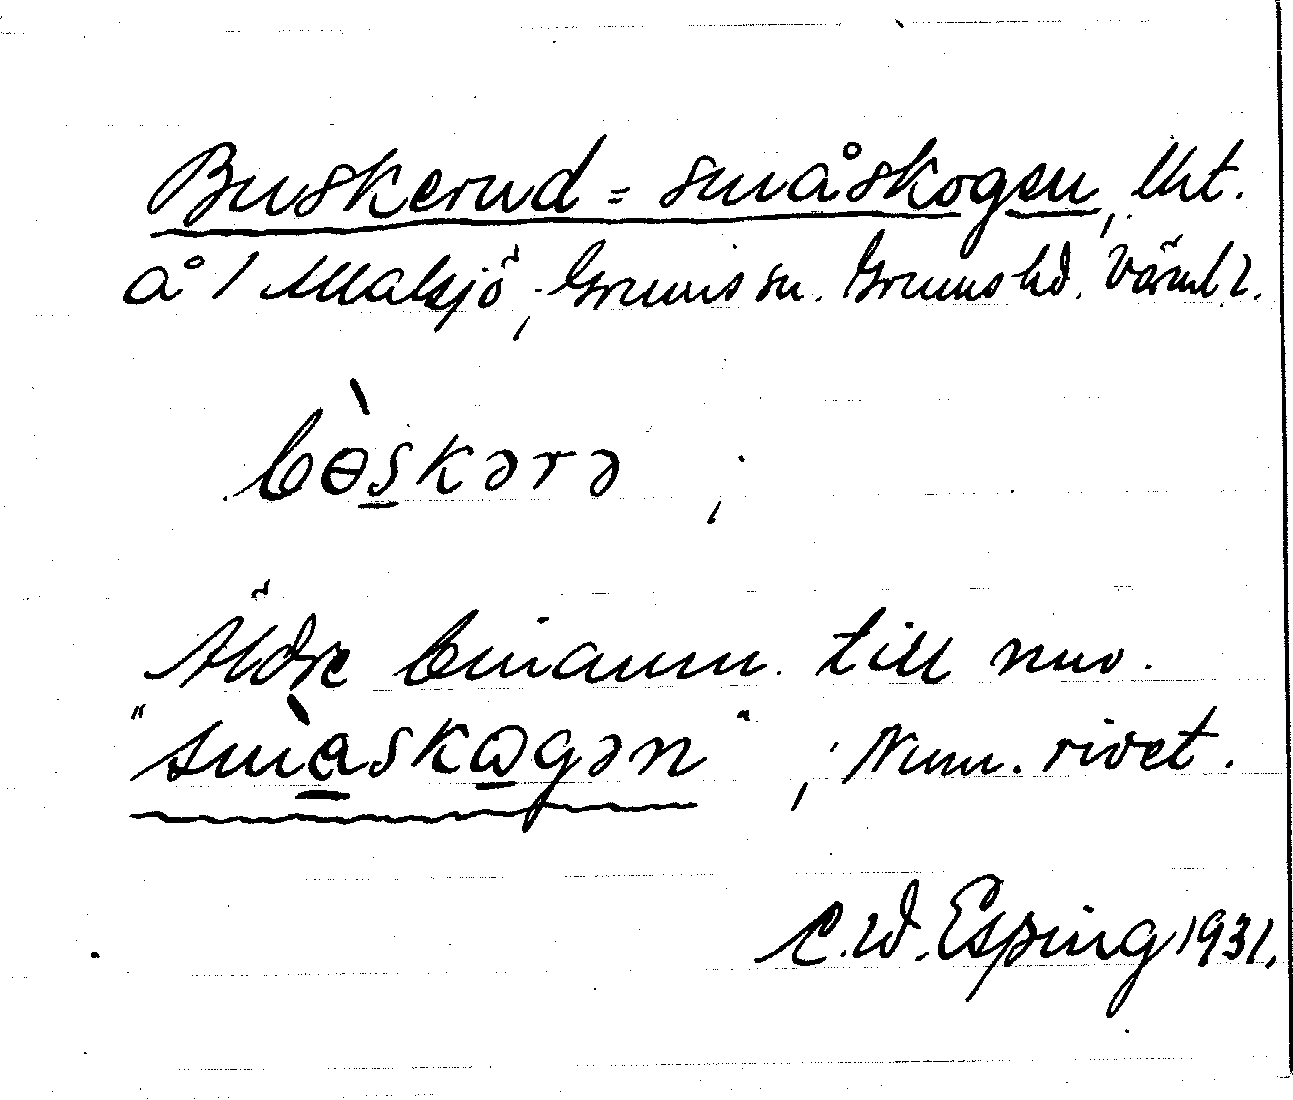 Buskerud = småskogen, lht.
å 1 Malsjö, Grums sn. Grums hd. Värml.
bɵ̀skərə ;
Äldre benämn. till nuv.
"smàskɷgən" ; Numr. rivet.
C.W. Esping 1931.